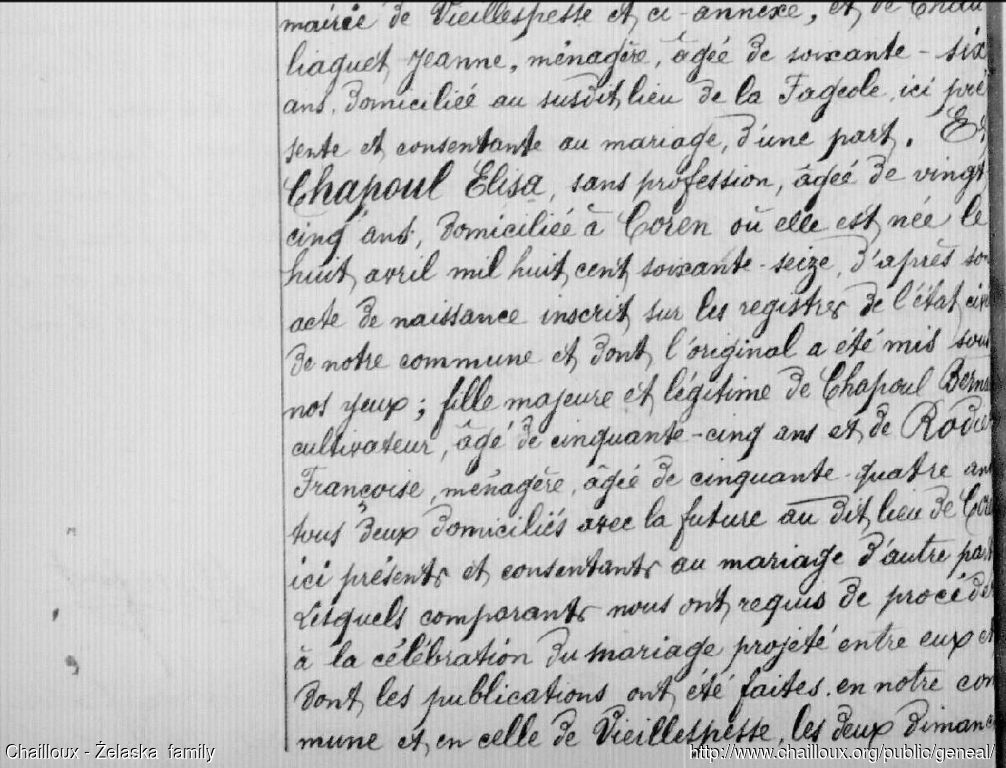 mairie de Vieillespesse et ci-annexé, et de Chau
liaguet Jeanne, ménagère, âgée de soixante-six
ans, domiciliée au susdit lieu de la Fageole, ici pré
sente et consentante au mariage, d'une part. Et
Chapoul Elisa, sans profession, âgée de vingt
cinq ans, domiciliée à Coren où elle est née le
huit avril mil huit cent soixante-seize, d'après son
acte de naissance inscrit sur les registres de l'état civ
de notre commune et dont l'original a été mis sous
nos yeux; fille majeure et légitime de Chapoul Berna
cultivateur, âgé de cinquante-cinq ans et de Rodier
Françoise, ménagère, âgée de cinquante-quatre ans
tous deux domiciliés avec la future au dit lieu de Core
ici présents et consentants au mariage d'autre part
Lesquels comparants nous ont requis de procéder
à la célébration du mariage projeté entre eux et
dont les publications ont été faites en notre com
mune et en celle de Vieillespesse, les deux dimanc
Chailloux - Želaska family
http://www.chailloux.org/public/geneal/